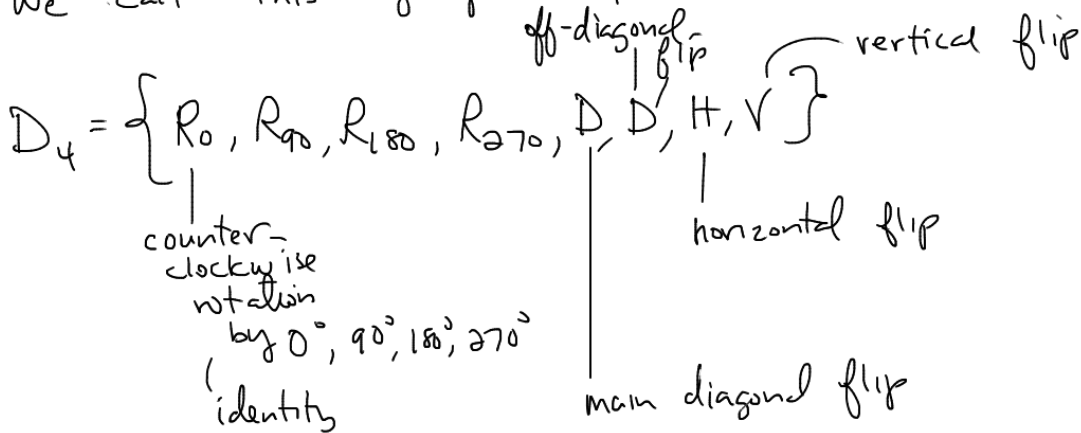 We call this
off-diagonal
flip
vertical flip
D₄ = { R₀, R₉₀, R₁₈₀, R₂₇₀, D, D', H, V }
counter-
clockwise
rotation
by 0°, 90°, 180°, 270°
identity
horizontal flip
main diagonal flip